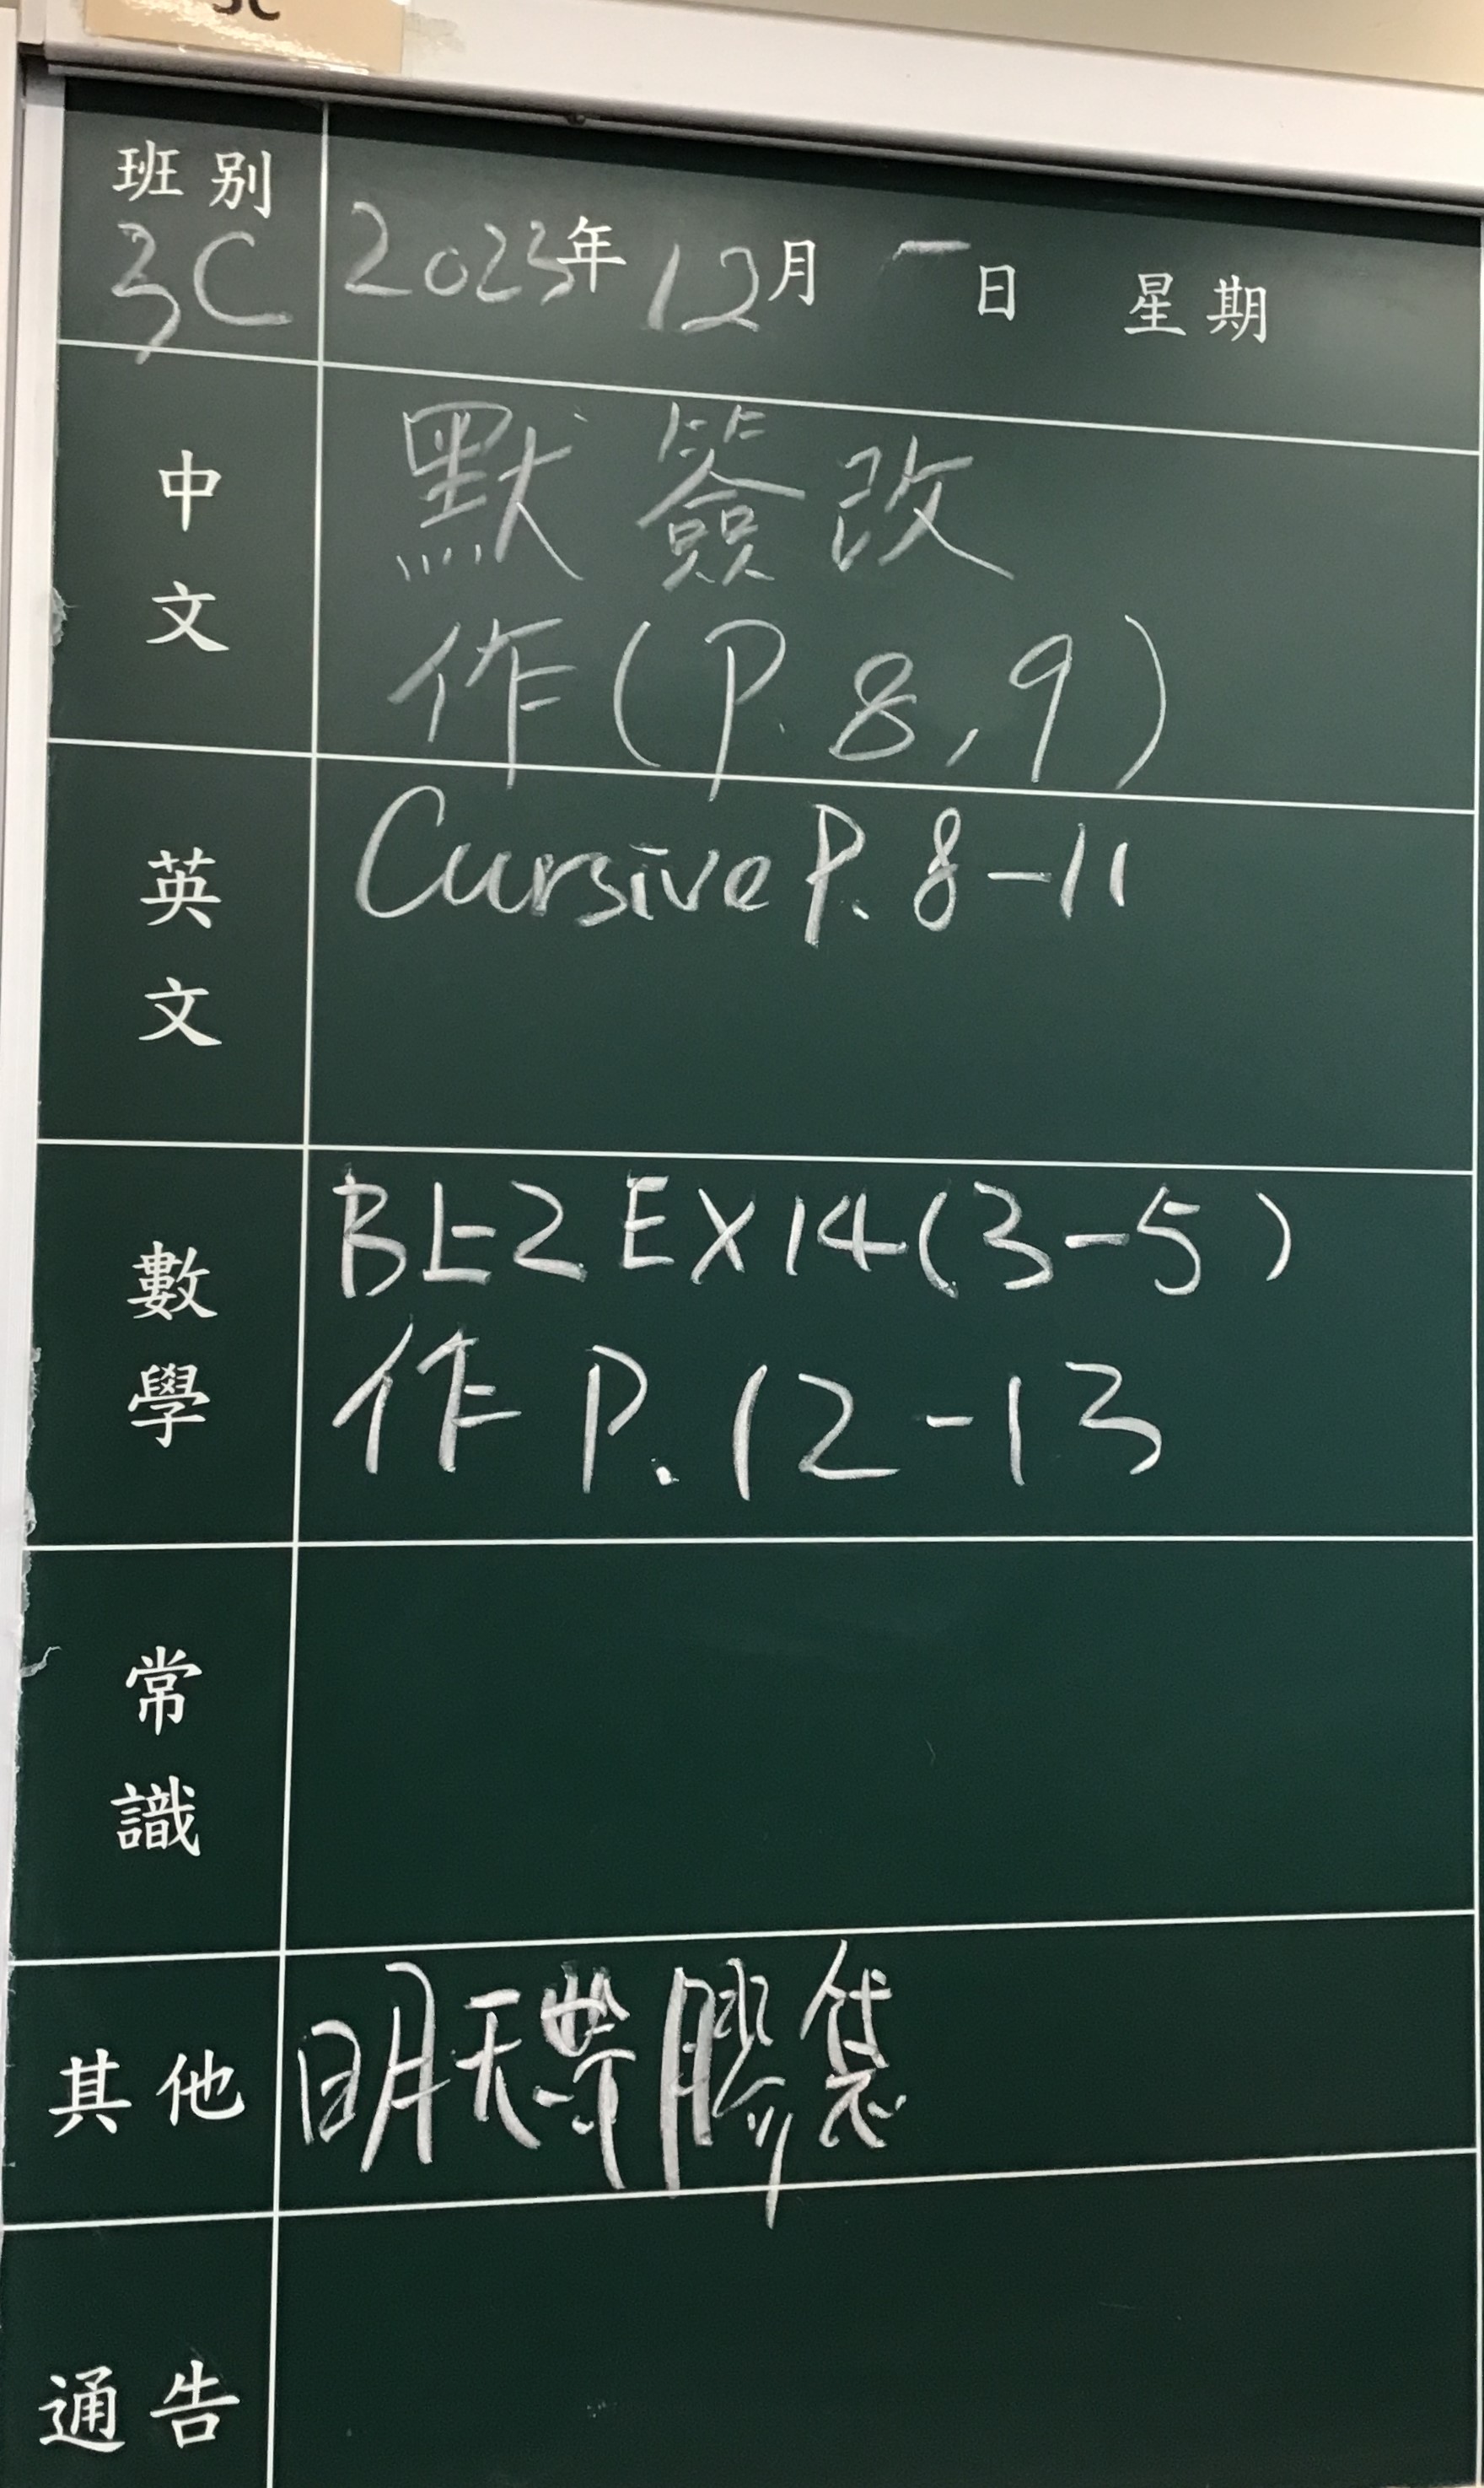 3C
班別
3C
2023年 12月 日 星期
中文
默 簽 改
作(P. 8, 9)
英文
Cursive P. 8-11
數學
BL2 EX14(3-5)
作 P. 12-13
常識
其他
明天帶膠袋
通告